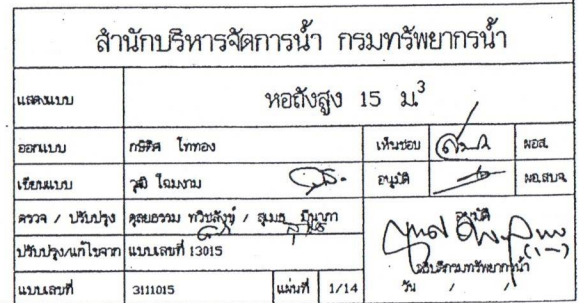 สำนักบริหารจัดการน้ำ กรมทรัพยากรน้ำ
แสดงแบบ หอถังสูง 15 ม.³
ออกแบบ กษิดิศ โททอง เห็นชอบ ผอส.
เขียนแบบ วุฒิ โฉมงาม อนุมัติ ผอ.สบจ.
ตรวจ / ปรับปรุง ดุลยธรรม ทวิชสังข์ / สุเมธ มีนาภา อนุมัติ
ปรับปรุง/แก้ไขจาก แบบเลขที่ 13015 อธิบดีกรมทรัพยากรน้ำ
แบบเลขที่ 3111015 แผ่นที่ 1/14 วัน / /